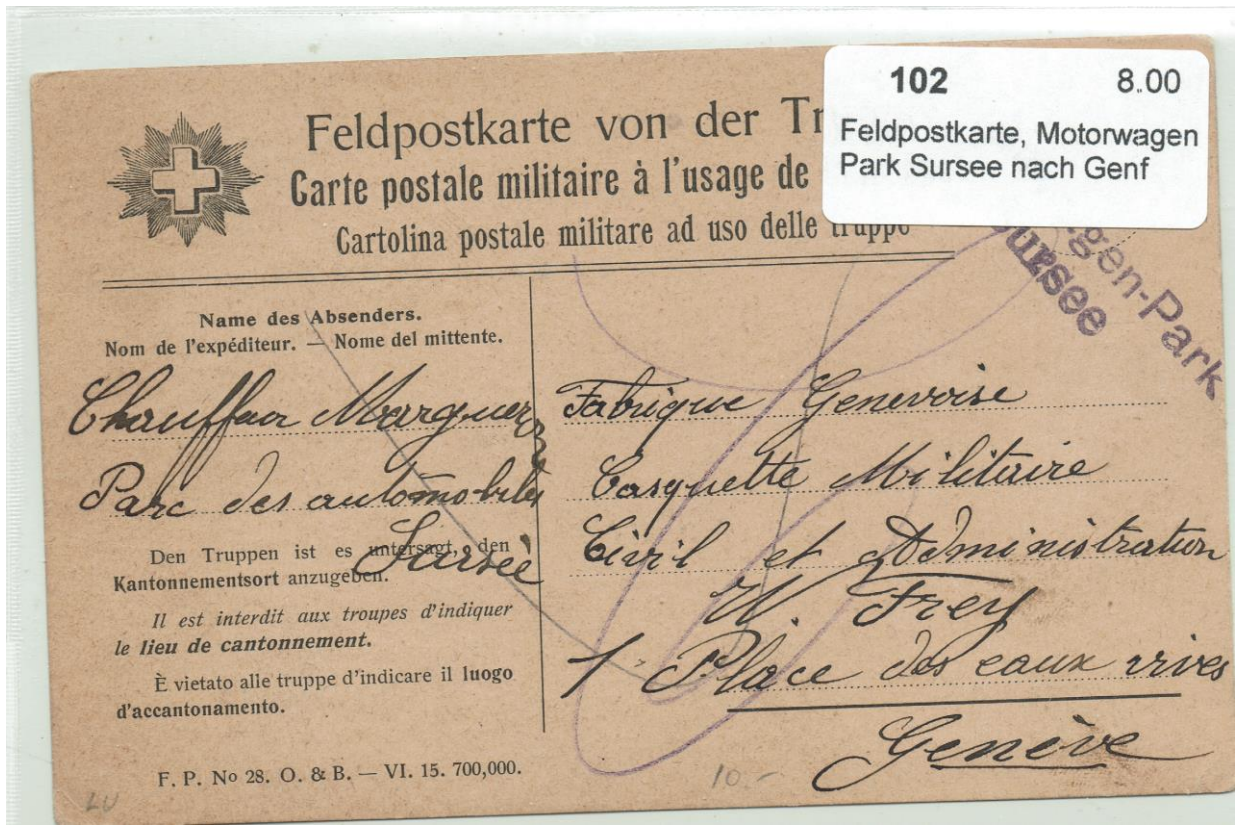 102 8.00
Feldpostkarte, Motorwagen
Park Sursee nach Genf
Feldpostkarte von der Tr
Carte postale militaire à l'usage de
Cartolina postale militare ad uso delle truppe
gen-Park
Sursee
Name des Absenders.
Nom de l'expéditeur. — Nome del mittente.
Chauffeur Marguer
Parc des automobiles
Sursée
Den Truppen ist es untersagt, den
Kantonnementsort anzugeben.
Il est interdit aux troupes d'indiquer
le lieu de cantonnement.
È vietato alle truppe d'indicare il luogo
d'accantonamento.
F. P. No 28. O. & B. — VI. 15. 700,000.
LU
Fabrique Genevoise
Casquette Militaire
Civil et Administration
W. Frey
1 Place des eaux vives
Genève
10 -